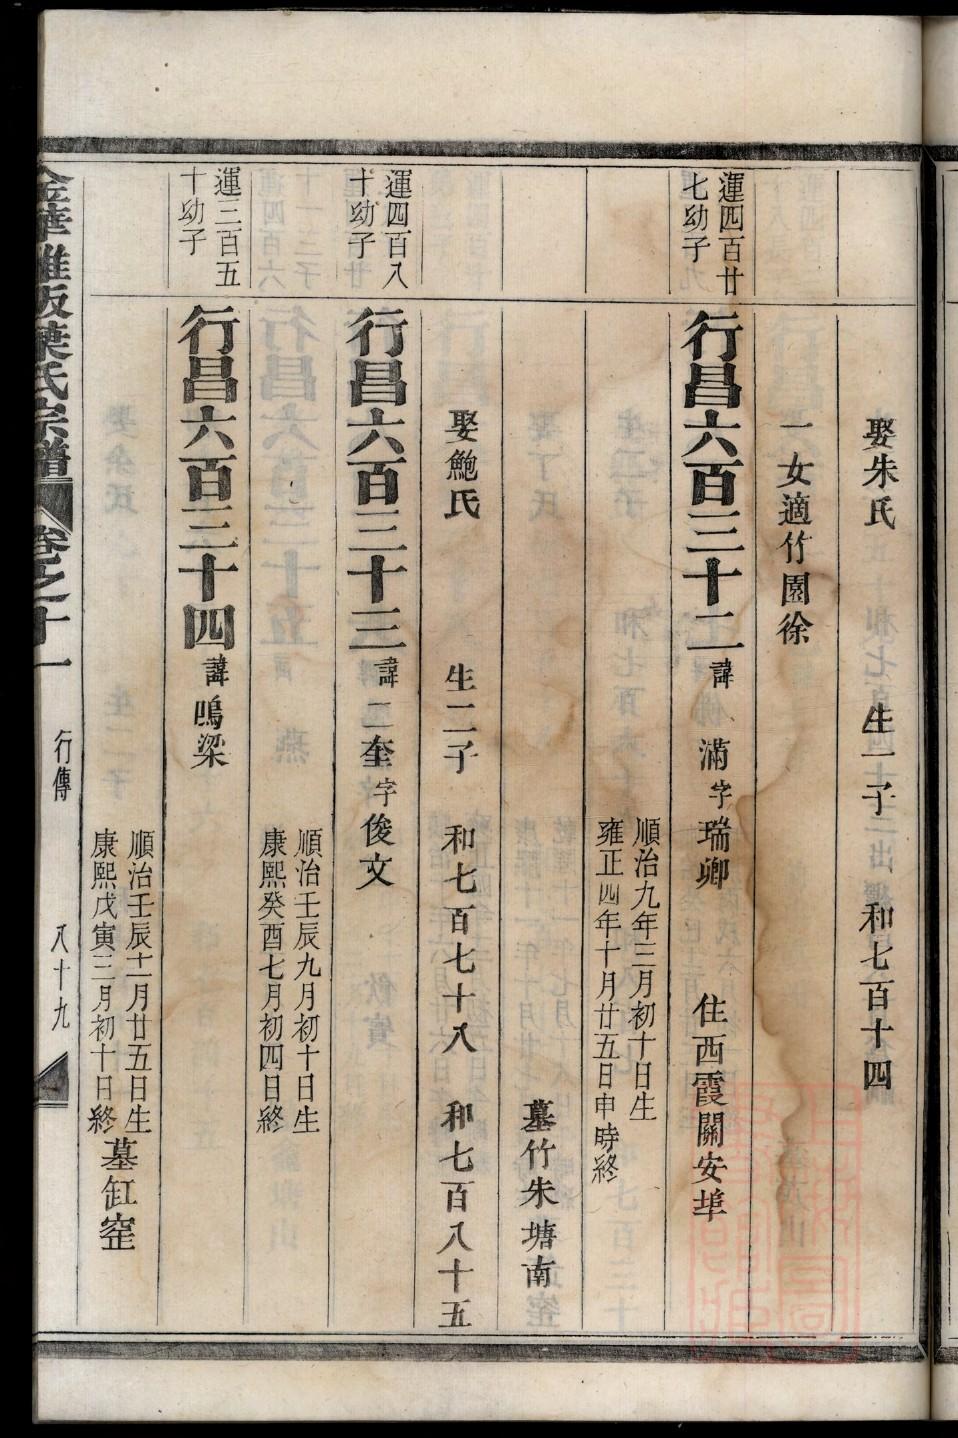 娶朱氏 生一子 和七百十四
一女適竹園徐
運四百廿
七幼子
行昌六百三十二 諱滿 字瑞卿 住西霞關安埠
順治九年三月初十日生
雍正四年十月廿五日申時終
墓竹朱塘南
娶鮑氏 生二子 和七百七十八 和七百八十五
運四百八
十幼子
行昌六百三十三 諱二奎 字俊文
順治壬辰九月初十日生
康熙癸酉七月初四日終
運三百五
十幼子
行昌六百三十四 諱鳴梁
順治壬辰十二月廿五日生
康熙戊寅三月初十日終
墓缸窑
葉氏宗譜 卷之十一 行傳 八十九